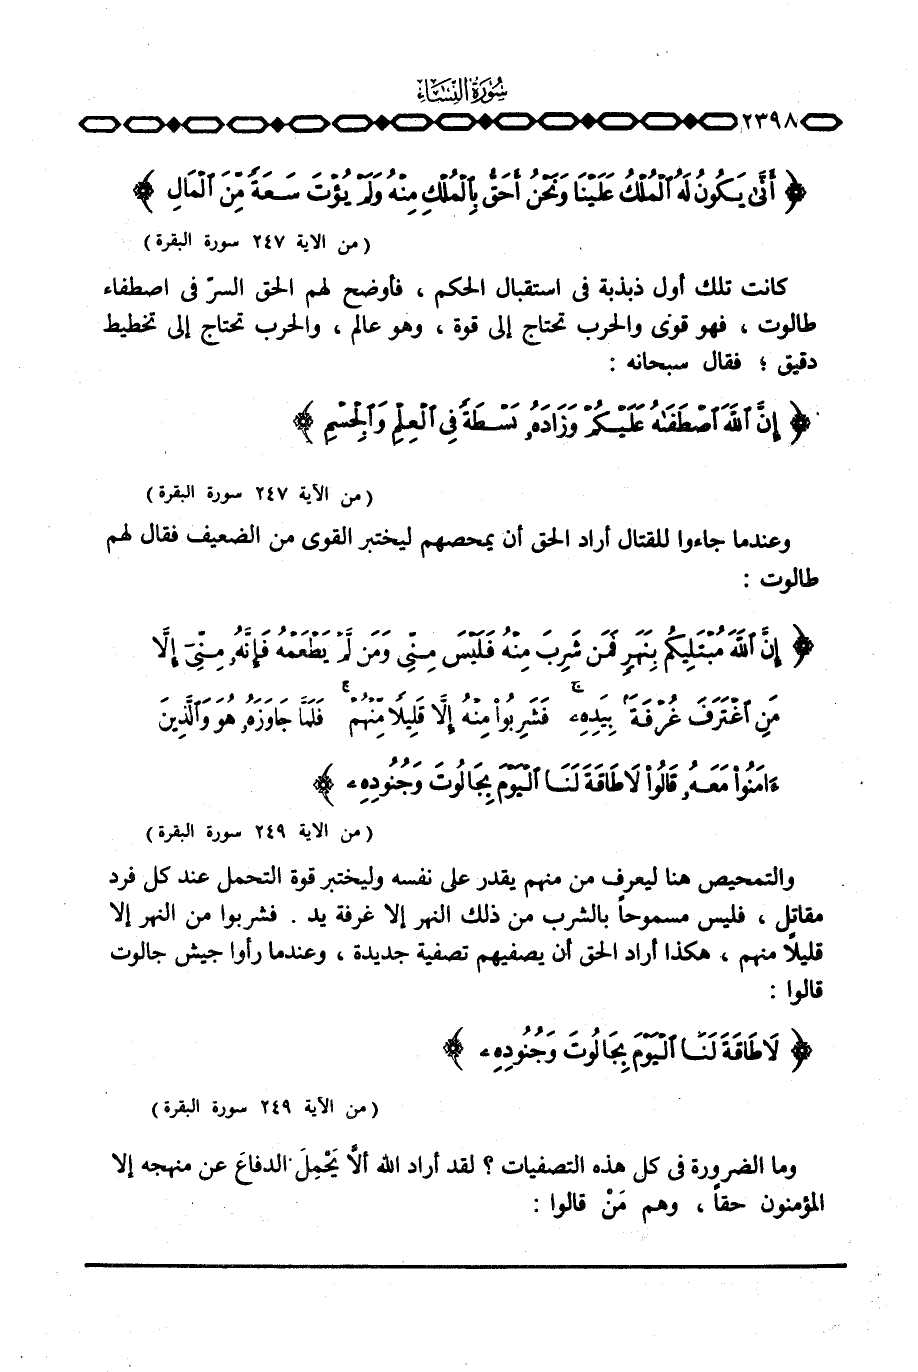 سُورَةُ النِّسَاءِ
٢٣٩٨
﴿ أَنَّىٰ يَكُونُ لَهُ ٱلْمُلْكُ عَلَيْنَا وَنَحْنُ أَحَقُّ بِٱلْمُلْكِ مِنْهُ وَلَمْ يُؤْتَ سَعَةً مِّنَ ٱلْمَالِ ﴾
( من الآية ٢٤٧ سورة البقرة )
كانت تلك أول ذبذبة فى استقبال الحكم ، فأوضح لهم الحق السرّ فى اصطفاء
طالوت ، فهو قوى والحرب تحتاج إلى قوة ، وهو عالم ، والحرب تحتاج إلى تخطيط
دقيق ؛ فقال سبحانه :
﴿ إِنَّ ٱللَّهَ ٱصْطَفَىٰهُ عَلَيْكُمْ وَزَادَهُۥ بَسْطَةً فِى ٱلْعِلْمِ وَٱلْجِسْمِ ﴾
( من الآية ٢٤٧ سورة البقرة )
وعندما جاءوا للقتال أراد الحق أن يمحصهم ليختبر القوى من الضعيف فقال لهم
طالوت :
﴿ إِنَّ ٱللَّهَ مُبْتَلِيكُم بِنَهَرٍ فَمَن شَرِبَ مِنْهُ فَلَيْسَ مِنِّى وَمَن لَّمْ يَطْعَمْهُ فَإِنَّهُۥ مِنِّىٓ إِلَّا
مَنِ ٱغْتَرَفَ غُرْفَةًۢ بِيَدِهِۦ ۚ فَشَرِبُوا۟ مِنْهُ إِلَّا قَلِيلًا مِّنْهُمْ ۚ فَلَمَّا جَاوَزَهُۥ هُوَ وَٱلَّذِينَ
ءَامَنُوا۟ مَعَهُۥ قَالُوا۟ لَا طَاقَةَ لَنَا ٱلْيَوْمَ بِجَالُوتَ وَجُنُودِهِۦ ﴾
( من الآية ٢٤٩ سورة البقرة )
والتمحيص هنا ليعرف من منهم يقدر على نفسه وليختبر قوة التحمل عند كل فرد
مقاتل ، فليس مسموحاً بالشرب من ذلك النهر إلا غرفة يد . فشربوا من النهر إلا
قليلاً منهم ، هكذا أراد الحق أن يصفيهم تصفية جديدة ، وعندما رأوا جيش جالوت
قالوا :
﴿ لَا طَاقَةَ لَنَا ٱلْيَوْمَ بِجَالُوتَ وَجُنُودِهِۦ ﴾
( من الآية ٢٤٩ سورة البقرة )
وما الضرورة فى كل هذه التصفيات ؟ لقد أراد الله ألاَّ يَحْمِلَ الدفاعَ عن منهجه إلا
المؤمنون حقاً ، وهم مَنْ قالوا :